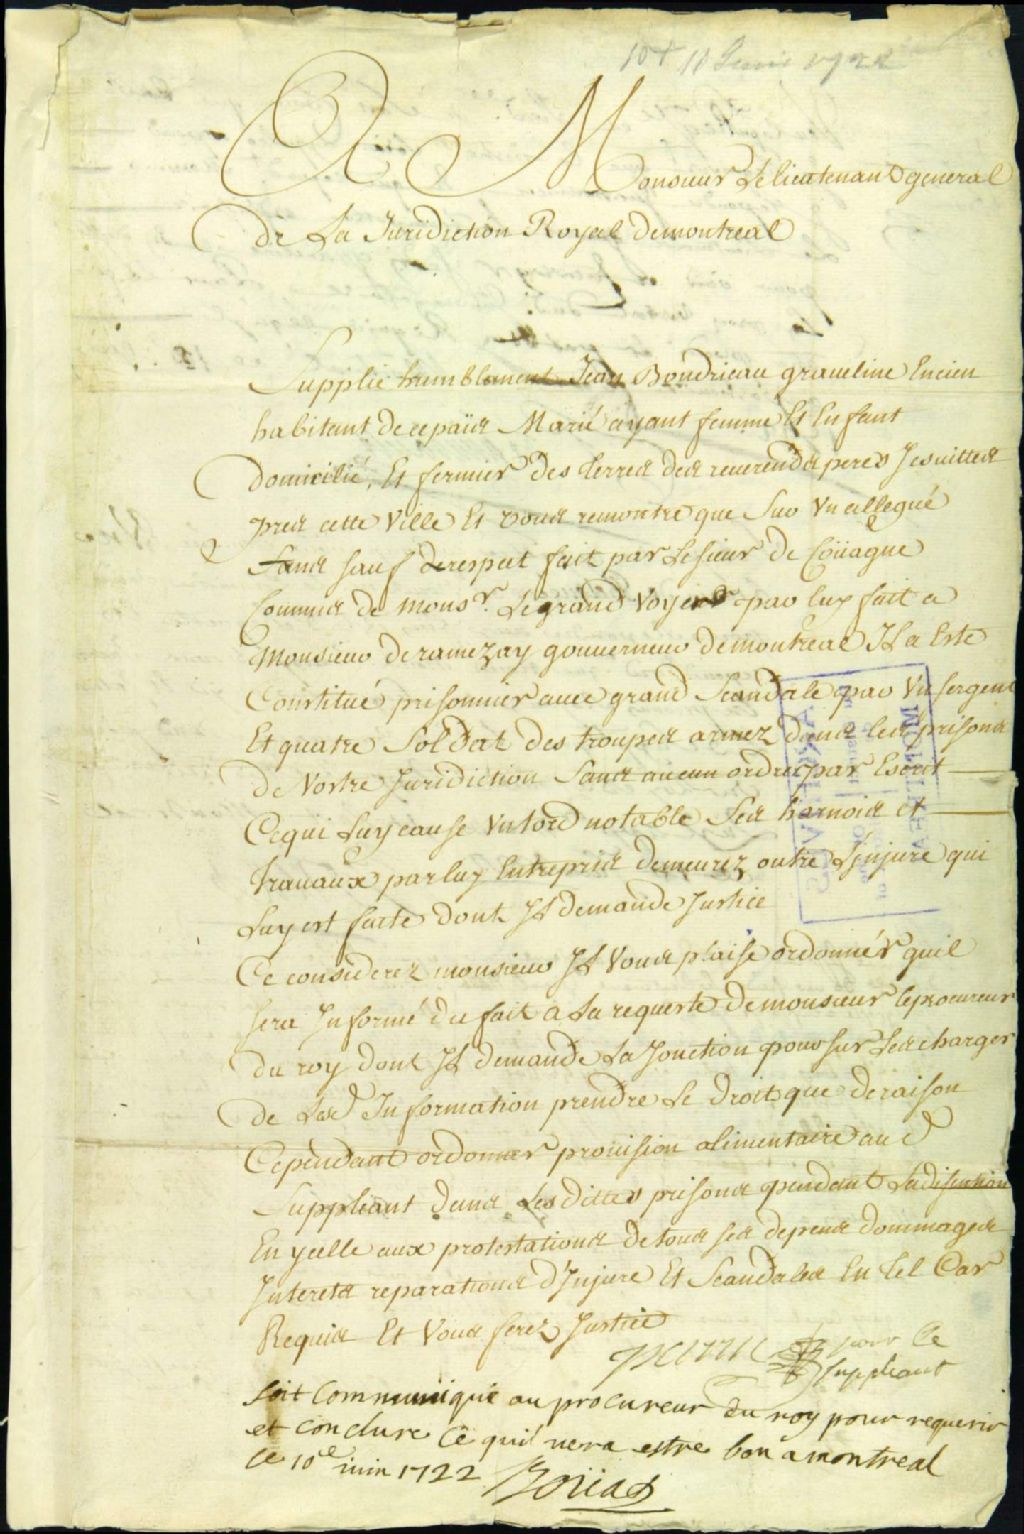 10 + 11 Juin 1722
A Monsieur Le lieutenant general
de La Juridiction Royal de montreal
Supplie humblement Jean Boudrieau graueline Encien
habitant de ce païs Marié ayant femme Et Enfant
domicilié, Et fermier des terres des reuerends peres Jesuittes
pres cette Ville Et Vous remontre que Sur Vn allegué
sans sauf de respect fait par Le sieur de Coüagne
Commis de Monsr. Le grand Voyer par luy fait a
Monsieur de ramezay gouuerneur de montreal Il a Esté
Constitué prisonnier auec grand Scandale par Vn sergent
Et quatre Soldat des troupes armez dans les prisons
de Vostre Juridiction Sans aucun ordre par Escrit
Ce qui Luy cause Vn tord notable Ses harnois et
trauaux par luy Entrepris demeurez outre L'injure qui
Luy est faite dont Il demande Justice
Ce considerez monsieur Il Vous plaise ordonner quil
sera Informé du fait a La requeste de monsieur le procureur
du roy dont Il demande La Jonction pour sur Les charges
de Lad Information prendre Le droit que de raison
Cependant ordonner prouision alimentaire aud
Suppliant dans Les dittes prisons pendant La detention
En ycelle aux protestations de tous ses depens dommages
Interets reparations d'Injure Et Scandales En tel Cas
Requis Et Vous ferez Justice
pour le
suppliant
soit Communiqué au procureur du roy pour requerir
et conclure Ce quil uera estre bon a montreal
le 10e iuin 1722 Boüat